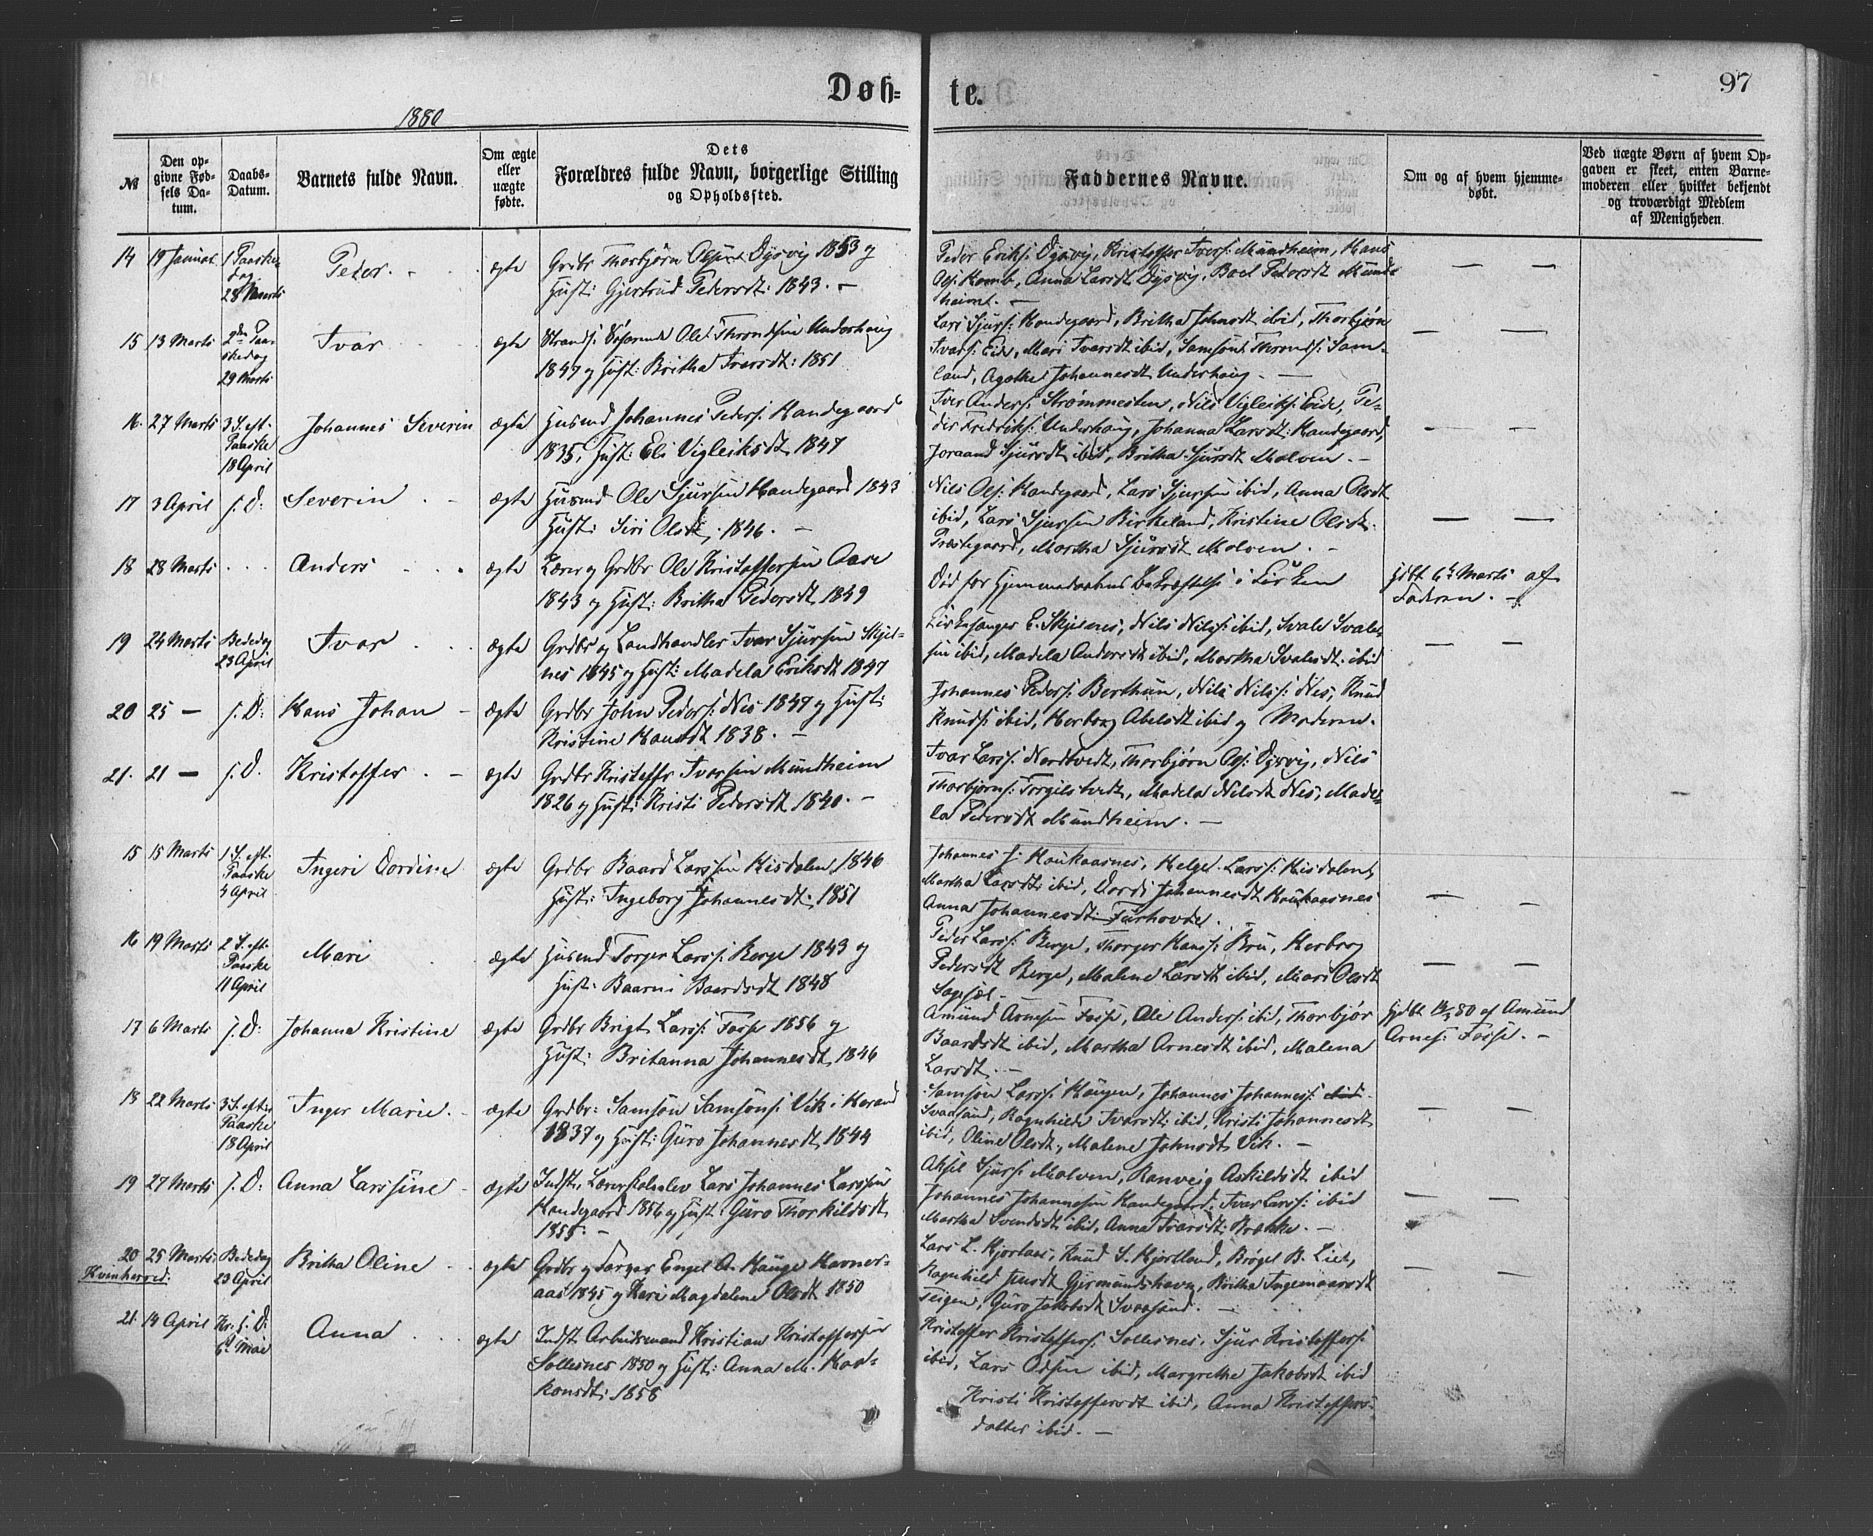 Døb-
te.
97
1880
№
Den op-
givne Fød-
sels Da-
tum.
Daabs-
Datum.
Barnets fulde Navn.
Om ægte
eller
uægte
fødte.
Dets
Forældres fulde Navn, borgerlige Stilling
og Opholdssted.
Faddernes Navne.
Om og af hvem hjemme-
døbt.
Ved uægte Børn af hvem Op-
gaven er skeet, enten Barne-
moderen eller hvilket bekjendt
og troværdigt Medlem
af Menigheden.
14 19 Januar 1 Paaske- Peder. ægte Grdbr Thorbjørn Olsen Dysvig 1853 og
dag
28 Marts Hust: Gjertrud Pedersdt: 1843. —
Peder Eriks: Dysvig, Kristoffer Ivers: Mundheim, Hans
Ols: Komb, Anna Larsdt Dysvig, Boel Pedersdt Mund-
heim. —
15 13 Marts 2den Paa- Ivar ægte Strands: Ole Throndsen Underhaug
skedag
29 Marts 1847 og Hust: Britha Iversdt: 1851
Lars Sjurs: Handegaard, Britha Johnsdt ibid, Thorbjørn
Ivars: Eide, Mari Ivarsdt ibid, Samson Thronds: Sam-
land, Agathe Johannesdt Underhaug. —
16. 27 Marts 3 S. eft. Johannes Severin ægte Husmd Johannes Peders: Handegaard
Paaske
18 April 1835, Hust: Eli Vigleiksdt 1847
Iver Anders: Strømmesten, Nils Vigleiks: Eide, Pe-
der Fredriks: Underhaug, Johanna Larsdt: Handegaard,
Joraand Sjursdt ibid, Britha Sjursdt Molven. —
17 3 April s. D: Severin ægte Husmd Ole Sjursen Handegaard 1843
Hust: Siri Olsdt, 1846. —
Nils Ols: Handegaard, Lars Sjursen ibid, Anna Olsdt
ibid, Lars Sjursen Birkeland, Kristine Olsdt.
Præstegaard, Martha Sjursdt Molven. —
18 28 Marts Anders ægte Lærer og Grdbr Ole Kristoffersen Aase
1843 og Hust: Britha Pedersdt 1849
Did før Hjemmedaabens Bekræftelse i Kirken
hjdbt 6te Marts af
Faderen. —
19 24 Marts Bededag Ivar ægte Grdbr og Landhandler Ivar Sjursen Skjel-
23 April nes 1845 og Hust: Madela Eriksdt 1847
Kirkesanger E. Skjelnes, Nils Nilss: ibid, Svale Svale-
sen ibid, Madela Andersdt ibid, Martha Svalesdt. ibid
20 25 — s. D: Hans Johan — ægte Grdbr John Peders: Nes 1847 og Hust:
Kristine Hansdt 1838. —
Johannes Peders: Berthun, Nils Nilss: Nes, Knud
Knuds: ibid, Herborg Abelsdt ibid og Moderen.
21. 21 — s. D. Kristoffer. — ægte Grdbr Kristoffer Ivarsen Mundheim
1826 og Hust: Kristi Pedersdt 1840. —
Ivar Larss: Nordtvedt, Thorbjørn Ols: Dysvig, Nils
Thorbjørns: Torgilstvedt, Madela Nilsdt Nes, Made-
la Pedersdt Mundheim. —
15 15 Marts 1 S. eft. Ingeri Dordine ægte Grdbr Baard Larssen Kisdalen 1846
Paaske
4 April Hust: Ingeborg Johannesdt. 1851
Johannes J: Haukaasnes, Helge Larss: Kisdalen,
Martha Larsdt: ibid, Dordi Johannesdt Haukaasnes
Anna Johannesdt. Furhovde.
16 19 Marts 2 S. eft. Mari ægte Husmd Torger Larss: Berge 1843 og
Paaske
11 April Hust: Baarni Baardsdt 1848
Peder Larss: Berge, Thorger Hanss: Bru, Herborg
Pedersdt Berge, Malene Larsdt ibid, Mari Olsdt
17 6 Marts s. D: Johanna Kristine ægte Grdbr Brigt Larss: Fosse 1856 og
Hust: Britanna Johannesdt, 1846
Amund Arnesen Fosse, Ole Anders: ibid, Thorbjør
Baardsdt ibid, Martha Arnesdt ibid, Malena
Larsdt. —
hjdbt 80 af Amund
Arnes: Fosse. —
18 22 Marts 3 S. efter Inger Marie. ægte Grdbr: Samson Samsons: Vik i
Paaske
18 April 1837 og Hust: Guro Johannesdt, 1844
Samson Larss: Haugen, Johannes Johanness: ibid
Svaasand, Ragnhilde Ivarsdt ibid, Kristi Johannesdt
ibid, Oline Olsdt., Malene Johnsdt Vik. —
19 27 Marts s. D: Anna Larssine ægte Indst, Lærerskolelev Lars Johannes Larssen
Handegaard 1856 og Hust: Guro Thorkildsdt
1855. —
Aksel Sjurs: Molven, Ranveig Askildsdt ibid
Johannes Johannesen Handegaard, Ivar Larss: ibid
Martha Svendsdt ibid, Anna Ivarsdt: Brække. —
20 25 Marts Bededag Britha Oline ægte Grdbr og Farver Engel A. Hauge Havner-
Kvinherred: 23 April aas 1845 og Kari Magdalene Olsdt 1850
Lars L. Hjortaas, Knud S. Hjortland, Brøgel B. Liet,
Ragnhild Gjermundshavn, Britha Ingemaarsdt
Guro Jakobsdt Svaasand. —
21. 14 April Kr. h. D: Anna ægte Indst. Arbeidsmand Kristian Kristoffersen
6te Mai Sollesnes 1850 og Hust: Anna M. Haa-
konsdt: 1858
Kristoffer Kristoffers: Sollesnes, Sjur Kristoffers:
ibid, Lars Odsen ibid, Margrethe Jakobsdt ibid
Kristi Kristoffersdt ibid, Anna Kristoffers-
datter ibid. —